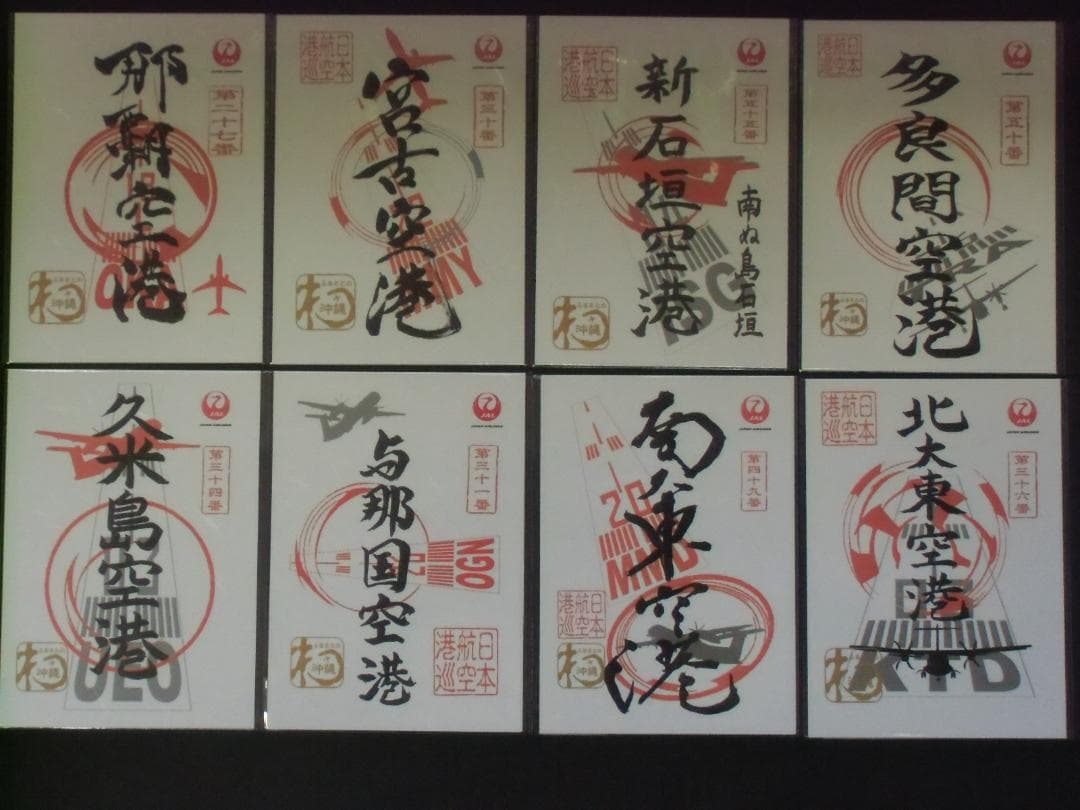 那覇空港
JAL
JAPAN AIRLINES
第二十七番
沖縄
宮古空港
日本航空港巡
JAL
JAPAN AIRLINES
第三十番
MMY
沖縄
新石垣空港
南ぬ島石垣
日本航空港巡
JAL
JAPAN AIRLINES
第五十五番
ISG
沖縄
多良間空港
日本航空港巡
JAL
JAPAN AIRLINES
第五十番
沖縄
久米島空港
JAL
JAPAN AIRLINES
第三十四番
UEO
沖縄
与那国空港
JAL
JAPAN AIRLINES
第三十一番
OGN
日本航空港巡
沖縄
南大東空港
JAL
JAPAN AIRLINES
第四十九番
20
MMD
日本航空港巡
沖縄
北大東空港
日本航空港巡
JAL
JAPAN AIRLINES
第三十六番
KTD